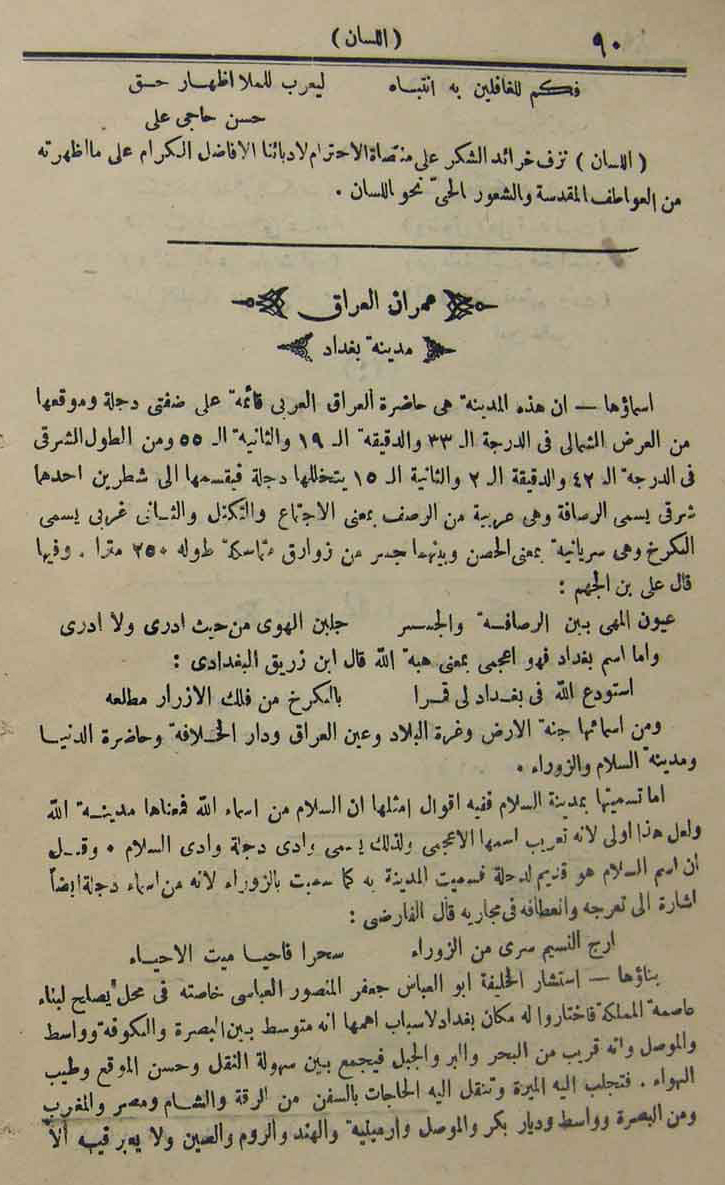 ٩٠ ( اللسان )
فكم للغافلين به انتباه ليعرب للملا اظهار حق
حسن حاجي علي
( اللسان ) تزف خرائد الشكر على منتصاة الاحترام لادبائنا الافاضل الكرام على مااظهرته
من العواطف المقدسة والشعور الحيّ نحو اللسان .
عمران العراق
مدينة بغداد
اسماؤها — ان هذه المدينة هى حاضرة العراق العربى قائمة على ضفتى دجلة وموقعها
من العرض الشمالى فى الدرجة الـ ٣٣ والدقيقة الـ ١٩ والثانية الـ ٥٥ ومن الطول الشرقى
فى الدرجة الـ ٤٢ والدقيقة الـ ٢ والثانية الـ ١٥ يتخللها دجلة فيقسمها الى شطرين احدهما
شرقى يسمى الرصافة وهى عربية من الرصف بمعنى الاجتماع والتكتل والثانى غربى يسمى
الكرخ وهى سريانية بمعنى الحصن وبينهما جسر من زوارق متماسكة طوله ٢٥٠ مترا . وفيها
قال على بن الجهم :
عيون المهى بين الرصافة والجسر جلبن الهوى من حيث ادرى ولا ادرى
واما اسم بغداد فهو اعجمى بمعنى هبة الله قال ابن زريق البغدادى :
استودع الله فى بغداد لى قمرا بالكرخ من فلك الازرار مطلعه
ومن اسمائها جنة الارض وغرة البلاد وعين العراق ودار الخلافة وحاضرة الدنيا
ومدينة السلام والزوراء .
اما تسميتها بمدينة السلام ففيه اقوال امثلها ان السلام من اسماء الله فمعناها مدينة الله
ولعل هذا اولى لانه تعريب اسمها الاعجمى ولذلك يسمى وادى دجلة وادى السلام . وقيل
ان اسم السلام هو قديم لدجلة فسميت المدينة به كما سميت بالزوراء لانه من اسماء دجلة ايضاً
اشارة الى تعرجه وانعطافه فى مجاريه قال الفارضى :
ارج النسيم سرى من الزوراء سحرا فاحيا ميت الاحياء
بناؤها — استشار الخليفة ابو العباس جعفر المنصور العباسى خاصته فى محل يصلح لبناء
عاصمة المملكة فاختاروا له مكان بغداد لاسباب اهمها انه متوسط بين البصرة والكوفة وواسط
والموصل وانه قريب من البحر والبر والجبل فيجمع بين سهولة النقل وحسن الموقع وطيب
الهواء . فتجلب اليه الميرة وتنقل اليه الحاجات بالسفن من الرقة والشام ومصر والمغرب
ومن البصرة وواسط وديار بكر والموصل وارمينية والهند والروم والصين ولا يعبر فيه الا